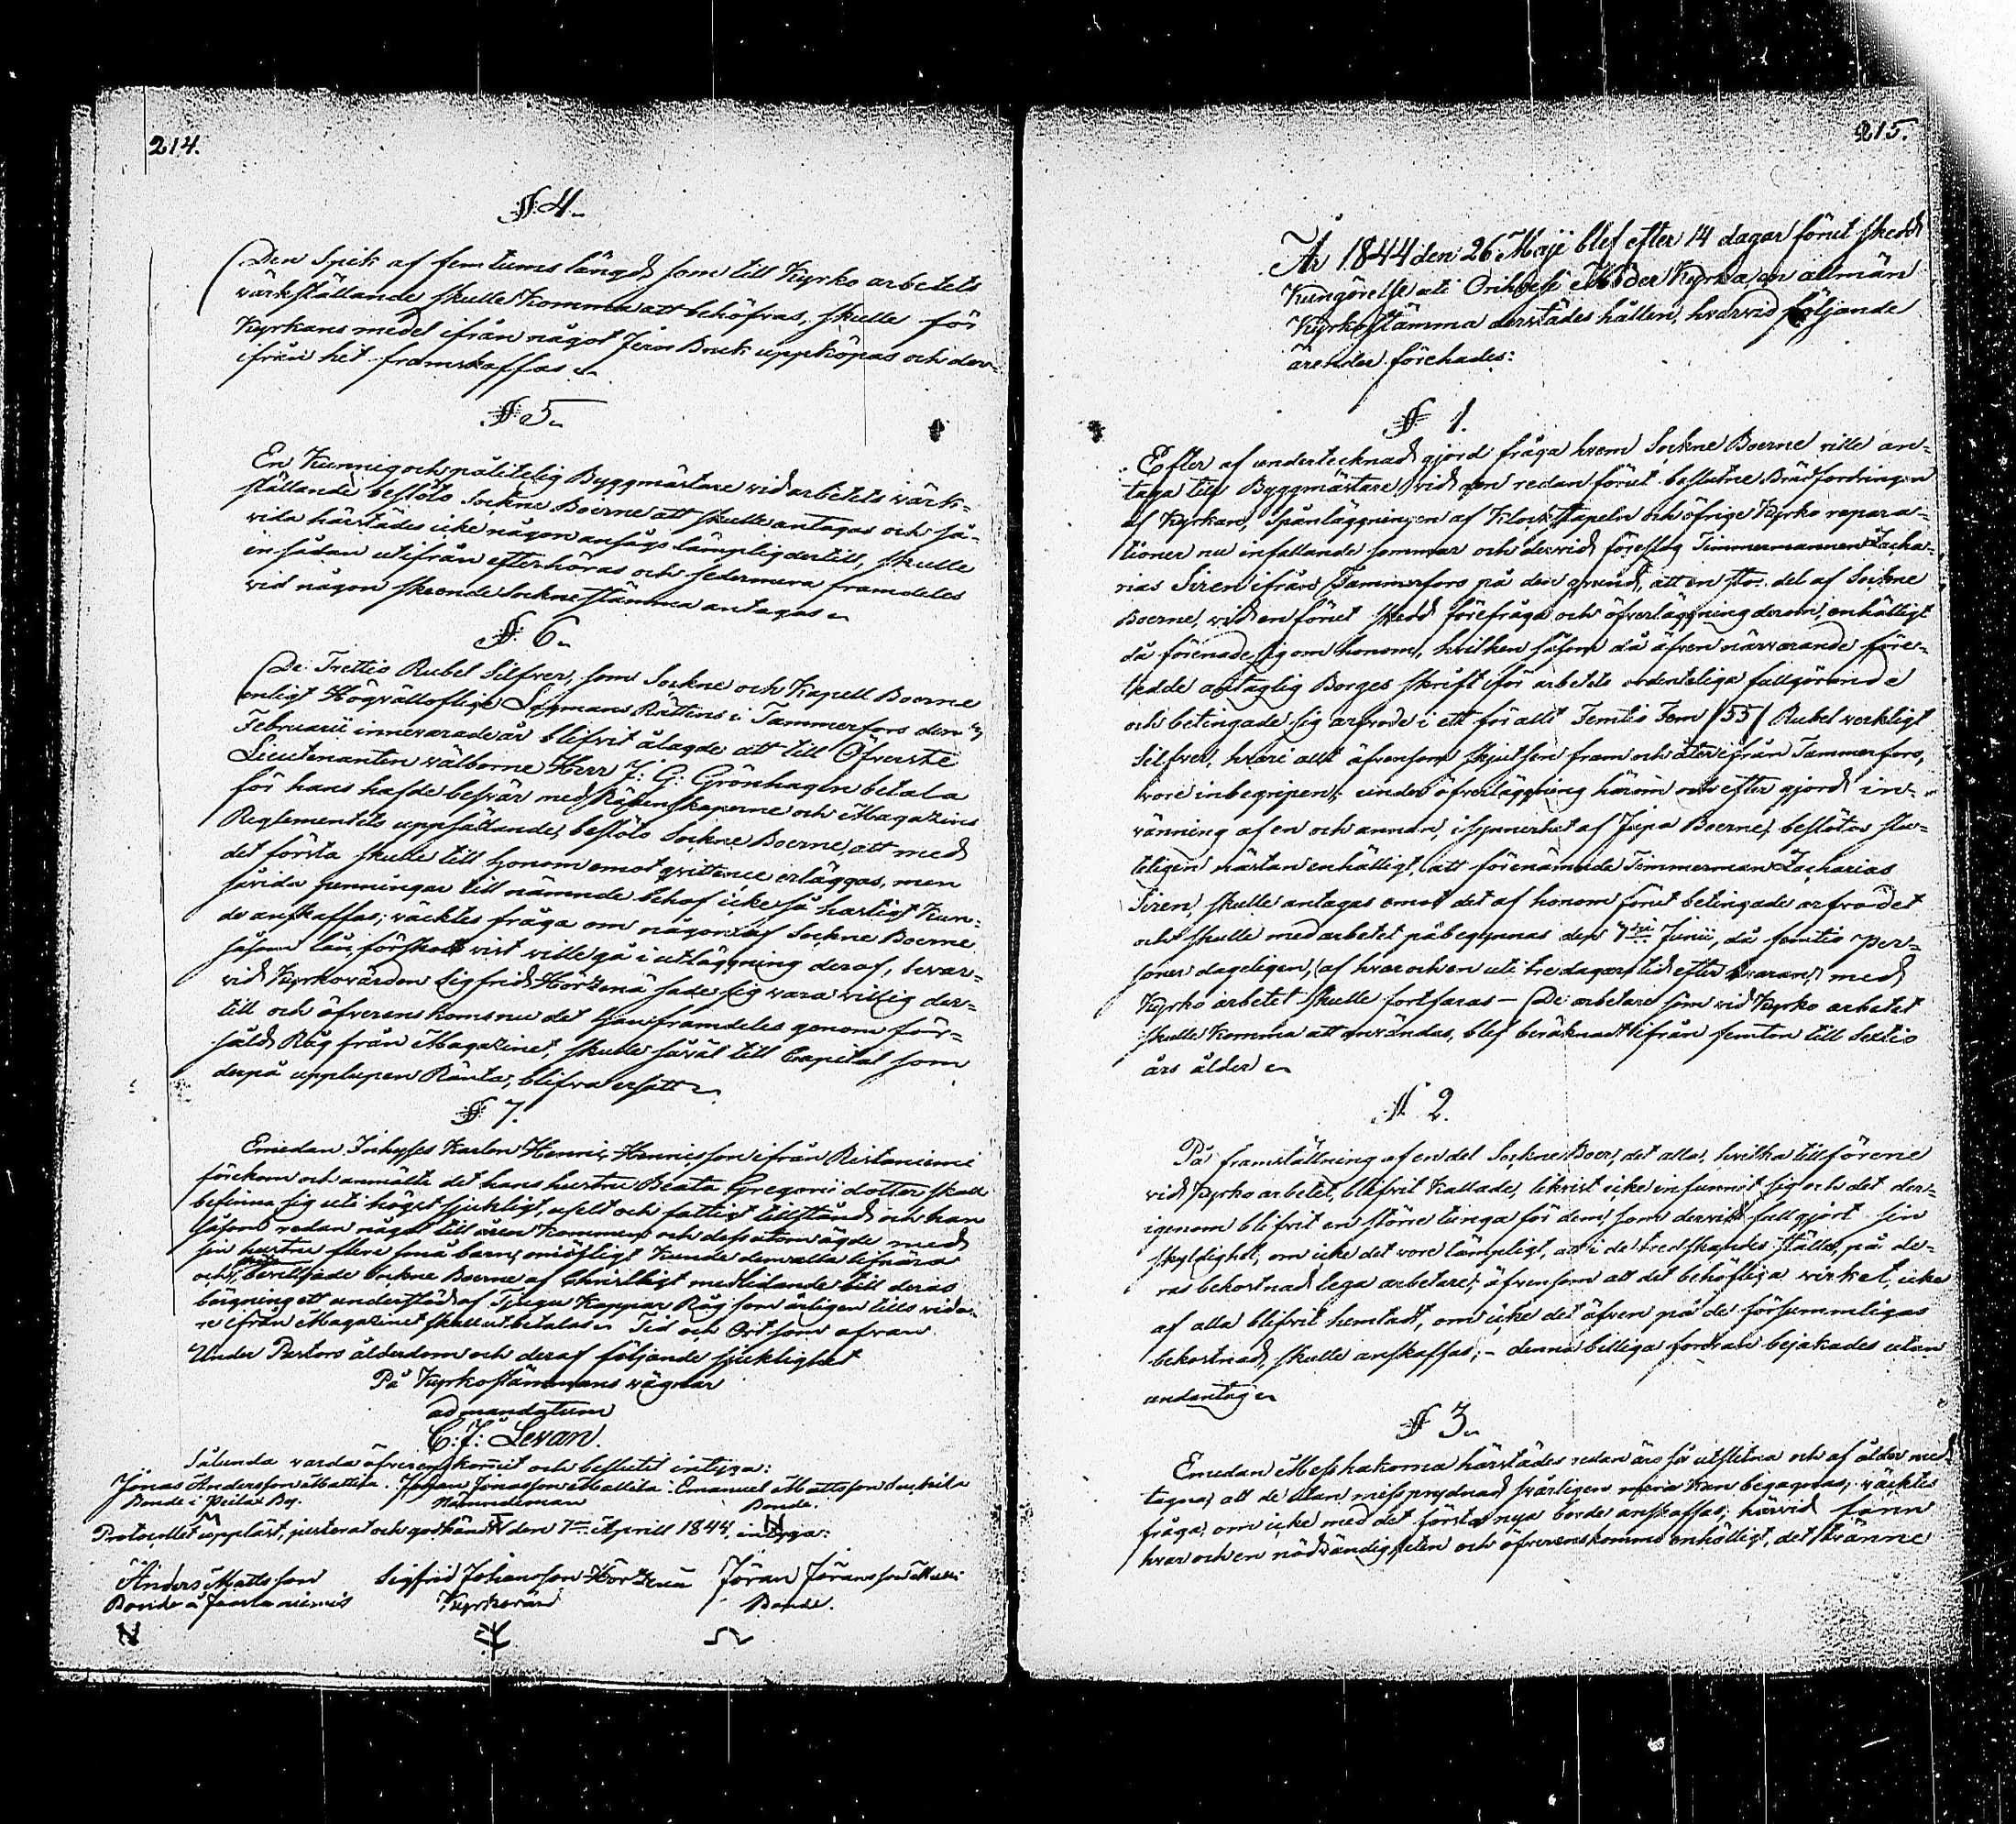 214.
§ 4.
Den Spik af femtums längd, som till Kyrko arbetets
värkställande skulle komma att behöfvas, skulle för
Kyrkans medel ifrån något Jern Bruk uppköpas och der-
ifrån hit framskaffas.
§ 5.
En Kunnig och pålitelig Byggmästare vid arbetets värk-
ställande beslöts Sockne Boerne att skulle antagas och så-
vida härstädes icke någon ansågs lämplig dertill, skulle
en sådan utifrån efterhöras och sedermera framdeles
vid någon skeende Sockne stämma antagas.
§ 6.
De Trettio Rubel Silfver, som Sockne och Kapell Boerne
enligt Högvälloflige Lagmans Rättens i Tammerfors den
Februarii innevarande år blifvit ålagde att till Öfverste
Lieutenanten välborne Herr J: G: Grönhagen betala
för hans hafde besvär med Räkenskaperne och Magazins
Reglementets uppsättande, beslöts Sockne Boerne, att med
det första skulle till honom emot qvittence erläggas, men
såvida penningar till nämnde behof icke så hastigt kun-
de anskaffas; väcktes fråga om någon af Sockne Boerne
såsom lån, förskotts vist ville gå i utläggning deraf, hvar-
vid Kyrkovärden Sigfrid Hörtenä sade sig vara villig der-
till och öfverens koms nu det han framdeles genom för-
såld Råg från Magazinet, skulle såväl till Capital som
derpå upplupen Ränta, blifva ersatt.
§ 7.
Emedan Inhyses Karlen Henric Henricsson ifrån Ristaniemi
förekom och anmälte det hans hustru Beata Gregorii dotter skall
befinna sig uti högst sjukligt, uselt och fattigt tillstånd och han
såsom redan något till åren kommen och dess utom ägde med
sin hustru flere små barn, omöjligt kunde dem alla lifnära
och, bevilljade Sockne Boerne af Christligt medlidande till deras
börgning ett understöd af Tjugu Kappar Råg som årligen tills vida-
re ifrån Magazinet skall utbetalas. Tid och Ort som ofvan.
Under Pastors ålderdom och deraf följande sjuklighet
På Kyrkostämmans vägnar
ad mandatum
C: J: Levan.
Sålunda varda öfverenskommit och beslutit intyga:
Jonas Andersson Mattila. Johan Jonasson Mattila. Emanuel Mattsson
Bonde i Nämndeman Bonde.
Protocollet uppläst, justerat och godkändt den 7de Aprill 1844, intyga:
Anders Mattsson Sigfrid Johansson Hörtenä Jöran Jöransson
Bonde Kyrkovärd Bonde.
215.
År 1844 den 26 Maji blef efter 14 dagar förut skedd
Kungörelse uti Orihvesi Moder Kyrka, en allmän
Kyrkostämma derstädes hållen, hvarvid följande
ärender förehades:
§ 1.
Efter af undertecknad gjord fråga hvem Sockne Boerne ville an-
taga till Byggmästare vid den redan förut beslutne Brädfordringen
af Kyrkan, Spånläggningen af Klockstapeln och öfrige Kyrko repara-
tioner nu infallande sommar och dervid föreslog Timmermannen Zacha-
rias Siren ifrån Tammerfors på den grund, att en stor del af Sockne
Boerne, vid en förut skedd förefråga och öfverläggning derom, enhälligt
då förenade sig om honom, hvilken såsom då äfven närvarande före-
tedde antaglig Borges skrift för arbetets ordenteliga fullgörande
och betingade sig arfvode i ett för allt Femtio Fem /55/ Rubel verkligt
Silfver, hvari allt äfvensom skjutsen fram och åter ifrån Tammerfors,
vore inbegripen; under öfverläggning härom och efter gjord in-
vänning af en och annan, i synnerhet af Jupa Boerne, beslöts slu-
teligen nästan enhälligt, att förenämnde Timmerman Zacharias
Siren, skulle antagas emot det af honom förut betingade arfvodet
och skulle med arbetet påbegynnas den 7de Junii, då femtio per-
soner dageligen, af hvar och en uti tre dagars tid efter hvarann, med
Kyrko arbetet skulle fortfaras – De arbetare som vid Kyrko arbetet
skulle komma att användas, blef beräknadt ifrån femton till Sextio
års ålder.
§ 2.
På framställning af en del Sockne Boer, det alla, hvilka tillförene
vid Kyrko arbetet, blifvit kallade, likvist icke infunnit sig och det der-
igenom blifvit en större tunga för dem, som dervid fullgjort sin
skyldighet, om icke det vore lämpligt, att i de tredskandes ställe, på de-
ras bekostnad lega arbetare, äfvensom att det behöfliga virket, icke
af alla blifvit hemtadt, om icke det äfven på de försummligas
bekostnad, skulle anskaffas; – denna billiga fordran bejakades utan
undantag.
§ 3.
Emedan Messhakorna härstädes redan äro så utslitna och af ålder med-
tagna, att de utan missprydnad svårligen mera kan begagnas; väcktes
fråga, om icke med det första nya borde anskaffas; härvid fann
hvar och en nödvändigheten och öfverenskomms enhälligt, det tvänne